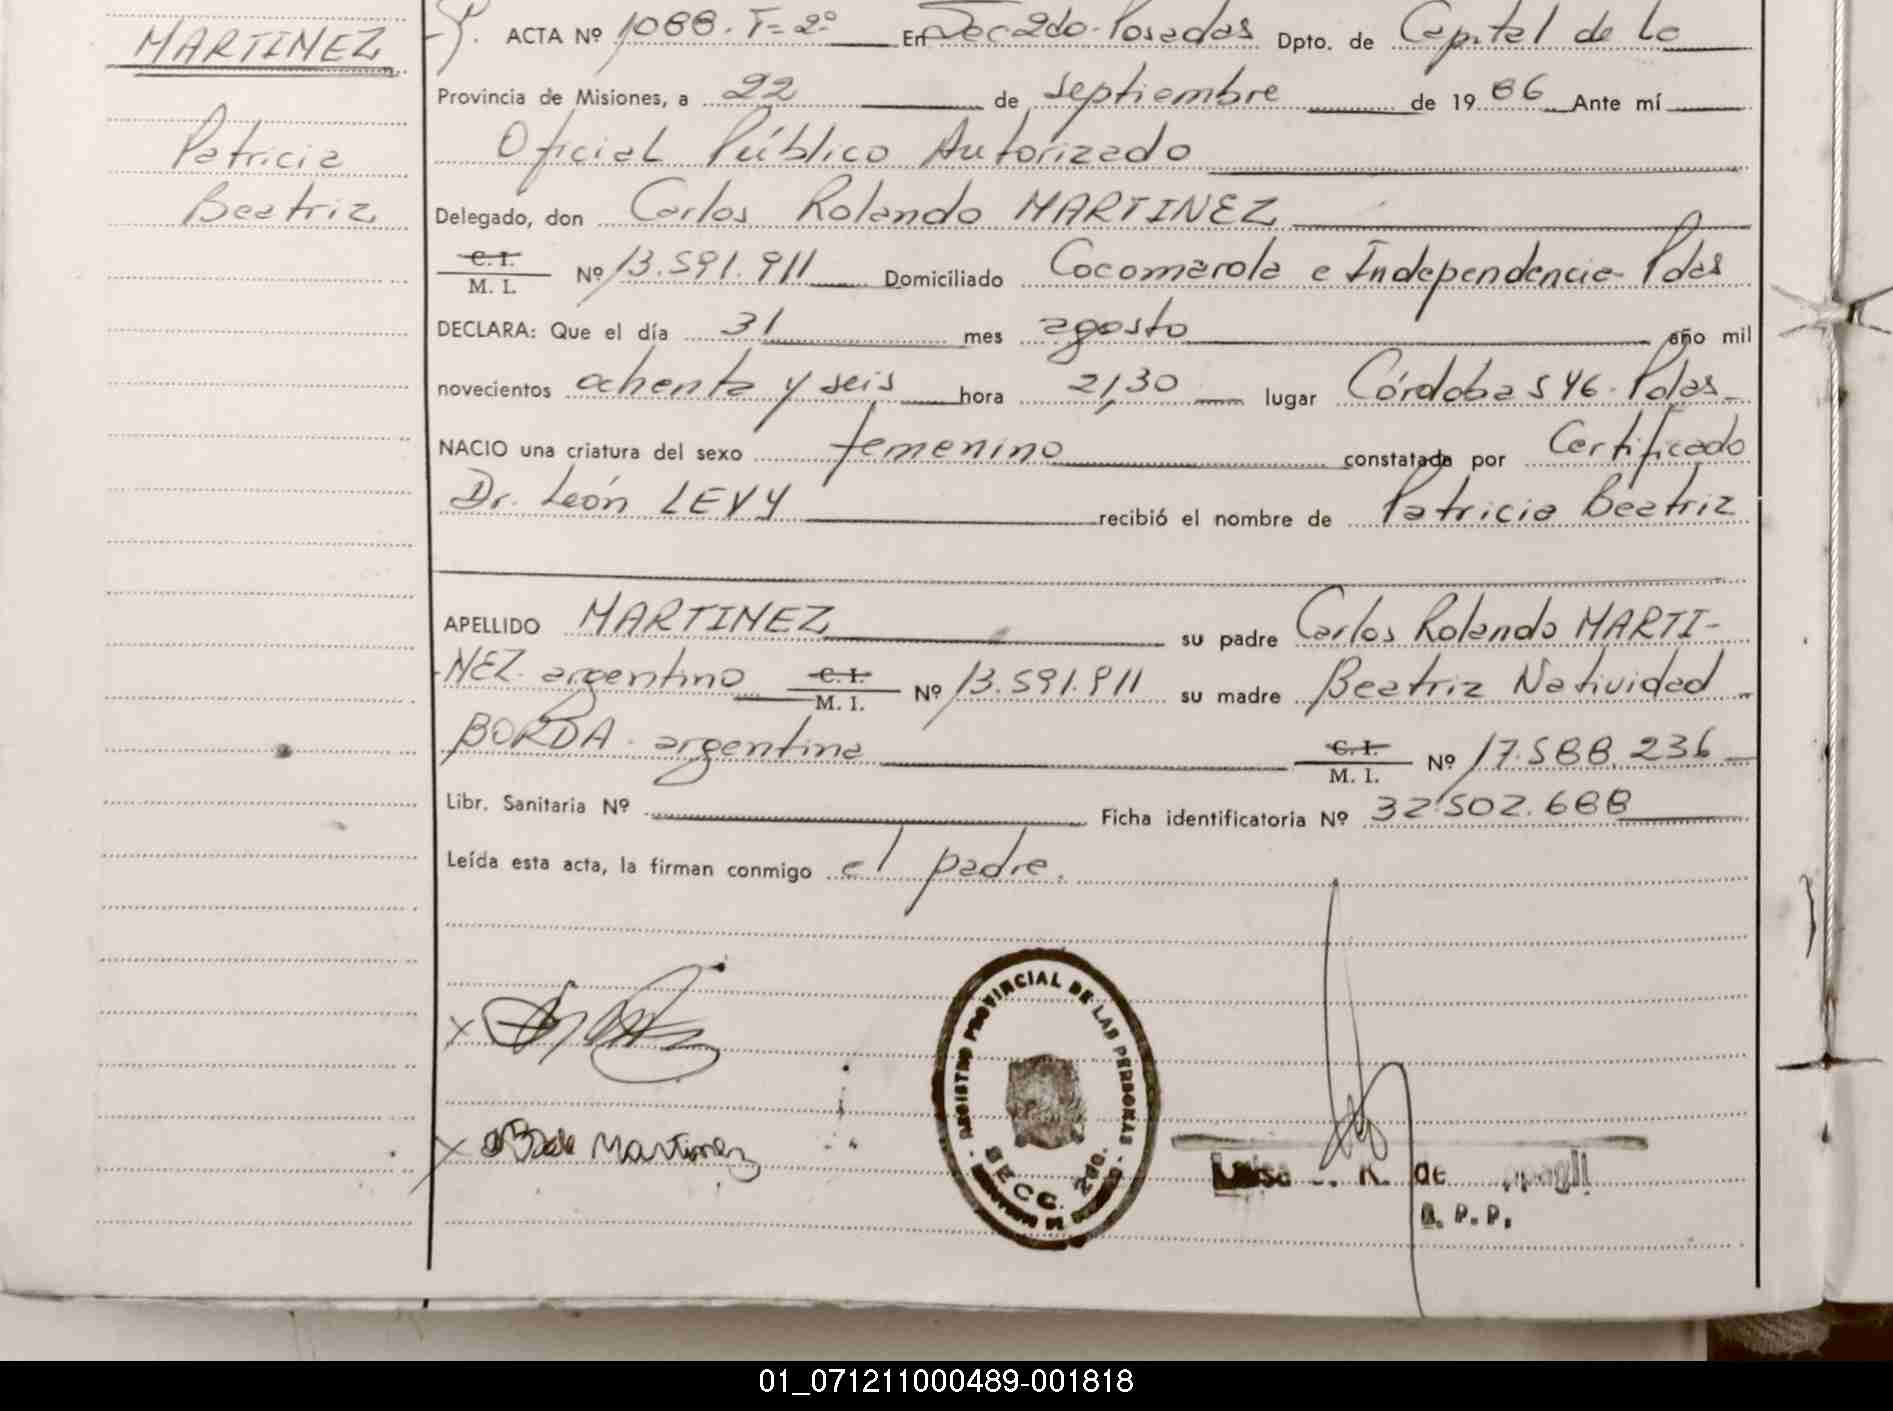 MARTINEZ
Patricia
Beatriz
ACTA Nº 1088. T=2º En Sec 2do. Posadas Dpto. de Capital de la
Provincia de Misiones, a 22 de septiembre de 1986 Ante mí
Oficial Público Autorizado
Delegado, don Carlos Rolando MARTINEZ
C. I.
M. I. Nº 13.591.911 Domiciliado Cocomarola e Independencia - Pdas
DECLARA: Que el día 31 mes agosto año mil
novecientos ochenta y seis hora 21,30 lugar Córdoba 546 - Pdas
NACIO una criatura del sexo femenino constatada por Certificado
Dr. León LEVY recibió el nombre de Patricia Beatriz
APELLIDO MARTINEZ su padre Carlos Rolando MARTI-
-NEZ. argentino C. I. M. I. Nº 13.591.911 su madre Beatriz Natividad
BORDA - argentina C. I. M. I. Nº 17.588.236
Libr. Sanitaria Nº Ficha identificatoria Nº 32.502.688
Leída esta acta, la firman conmigo el padre.
x
x B de Martinez
REGISTRO PROVINCIAL DE LAS PERSONAS
SECC. 2do.
Luisa R. de
01_071211000489-001818